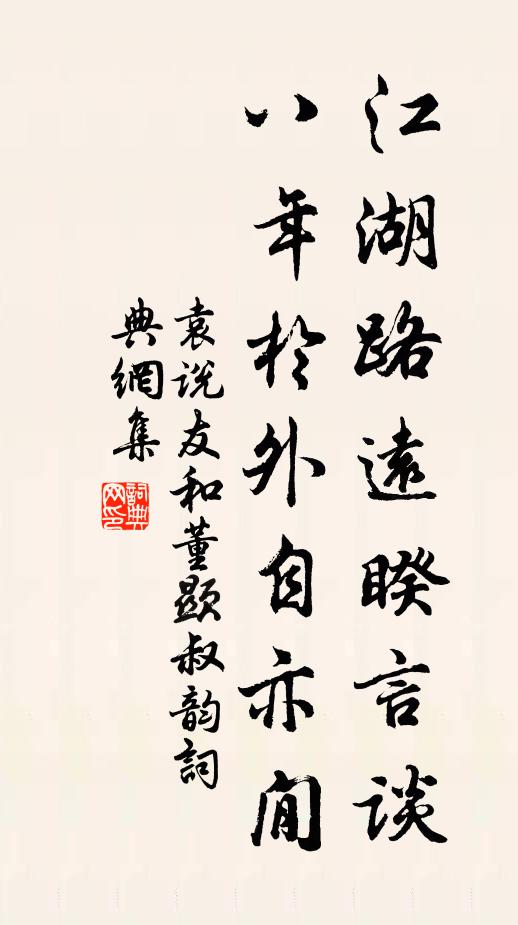 江湖路遠睽言談
八年於外自亦閒
袁說友和董顯叔韵詞
典網集
詞典网印